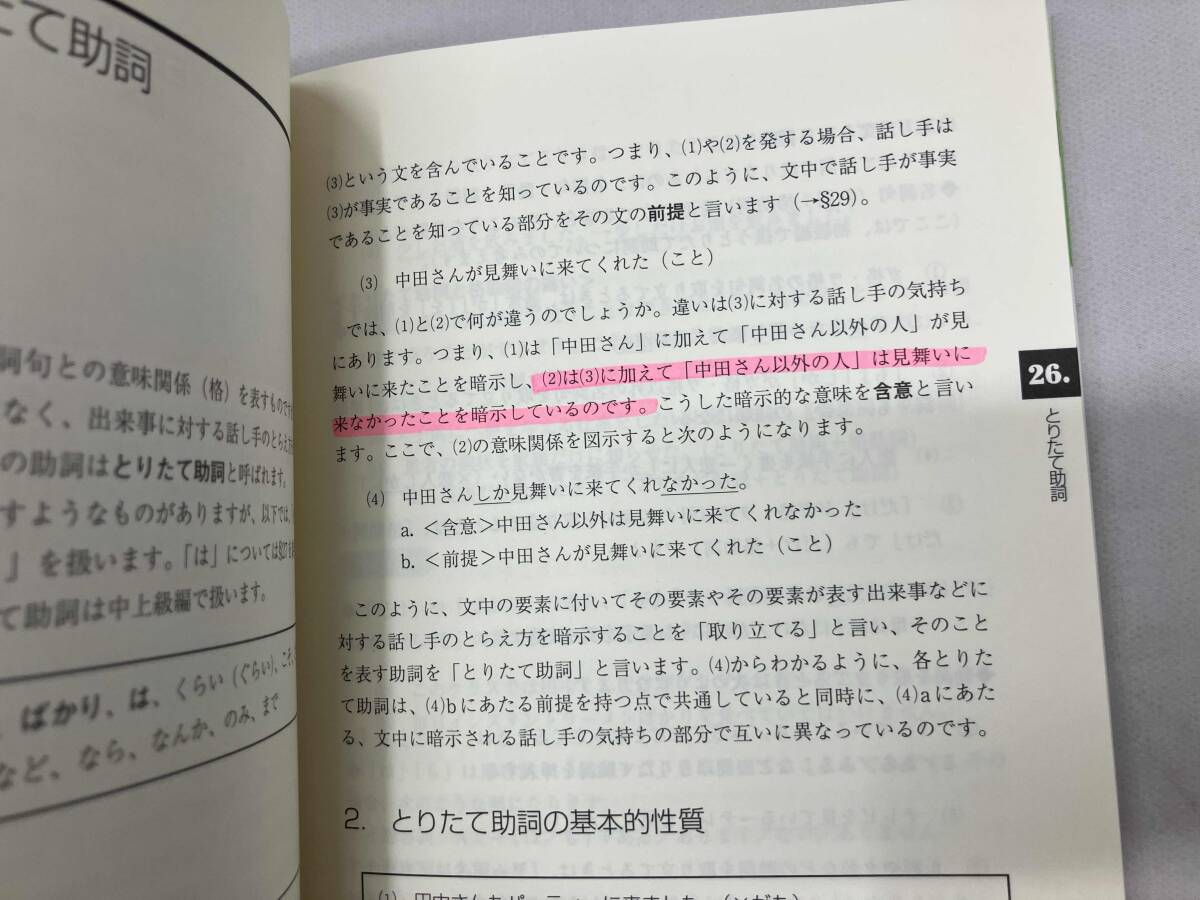 たて助詞
詞句との意味関係（格）を表すものです
なく、出来事に対する話し手のとらえ方
の助詞はとりたて助詞と呼ばれます。
すようなものがありますが、以下では、
」を扱います。「は」については§27を
て助詞は中上級編で扱います。
ばかり、は、くらい（ぐらい）、こそ、
など、なら、なんか、のみ、まで
(3)という文を含んでいることです。つまり、(1)や(2)を発する場合、話し手は
(3)が事実であることを知っているのです。このように、文中で話し手が事実
であることを知っている部分をその文の前提と言います（→§29）。
(3) 中田さんが見舞いに来てくれた（こと）
では、(1)と(2)で何が違うのでしょうか。違いは(3)に対する話し手の気持ち
にあります。つまり、(1)は「中田さん」に加えて「中田さん以外の人」が見
舞いに来たことを暗示し、(2)は(3)に加えて「中田さん以外の人」は見舞いに
来なかったことを暗示しているのです。こうした暗示的な意味を含意と言い
ます。ここで、(2)の意味関係を図示すると次のようになります。
(4) 中田さんしか見舞いに来てくれなかった。
a. ＜含意＞中田さん以外は見舞いに来てくれなかった
b. ＜前提＞中田さんが見舞いに来てくれた（こと）
このように、文中の要素に付いてその要素やその要素が表す出来事などに
対する話し手のとらえ方を暗示することを「取り立てる」と言い、そのこと
を表す助詞を「とりたて助詞」と言います。(4)からわかるように、各とりた
て助詞は、(4)bにあたる前提を持つ点で共通していると同時に、(4)aにあた
る、文中に暗示される話し手の気持ちの部分で互いに異なっているのです。
2. とりたて助詞の基本的性質
26.
とりたて助詞